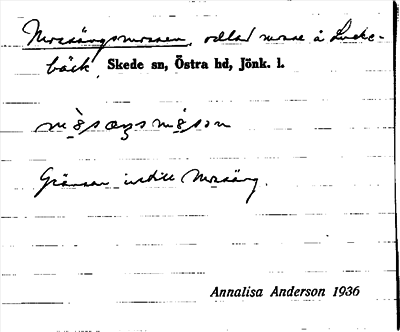 Mossängsmossen, odlad mosse å Lucke-
bäck, Skede sn, Östra hd, Jönk. l.
Gränsar intill Mosäng.
Annalisa Anderson 1936